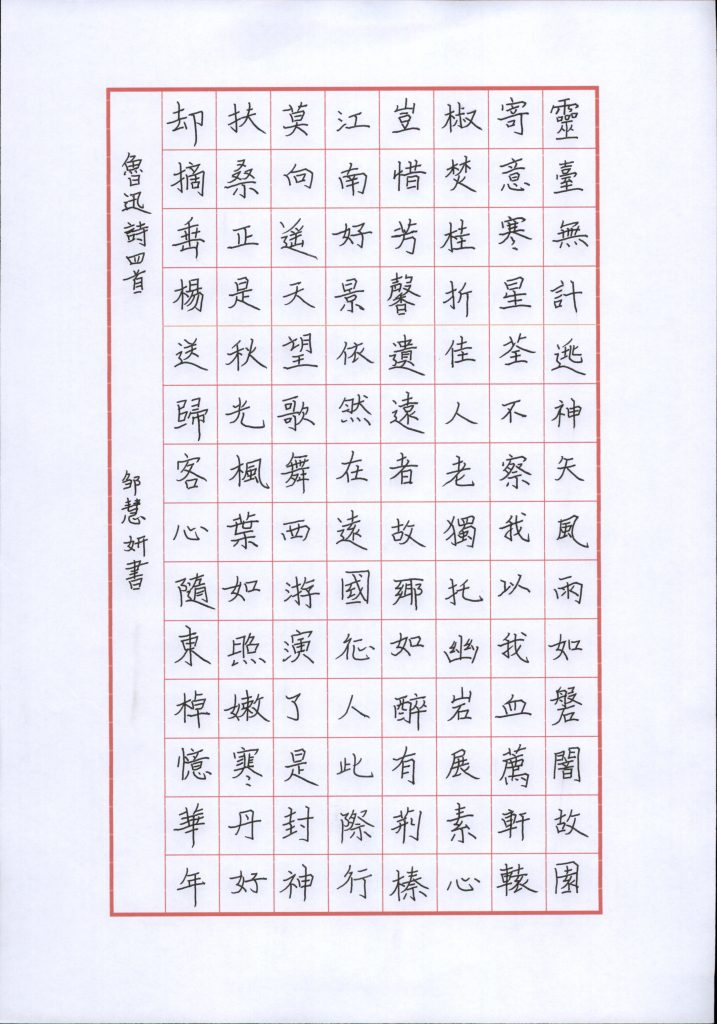 靈臺無計逃神矢風雨如磐闇故園
寄意寒星荃不察我以我血薦軒轅
椒焚桂折佳人老獨托幽岩展素心
豈惜芳馨遺遠者故鄉如醉有荆榛
江南好景依然在遠國征人此際行
莫向遥天望歌舞西游演了是封神
扶桑正是秋光楓葉如照嫩寒丹好
却摘垂楊送歸客心隨東棹憶華年
魯迅詩四首 邹慧妍書